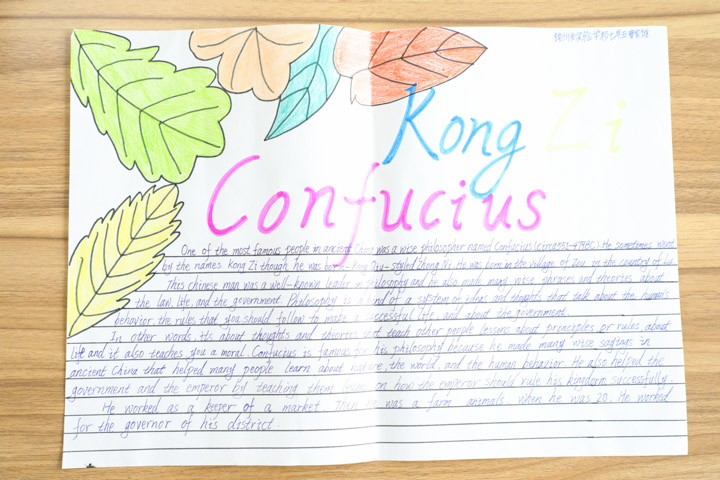 Kong Zi
Confucius
One of the most famous people in ancient China was a wise philosopher named Confucius (circa 551-479BC). He sometimes went
by the names Kong Zi though he was born - Kong Qiu - styled Zhong Ni. He was born in the village of Zou in the country of Lu.
This chinese man was a well-known leader in philosophy and he also made many wise phrases and theories about
the law, life, and the government. Philosophy is a kind of a system of ideas and thoughts that talk about the human's
behavior, the rules that you should follow to make a successful life, and about the government.
In other words, it's about thoughts and theories that teach other people lessons about principles, or rules, about
life and it also teaches you a moral. Confucius is famous for his philosophy because he made many wise sayings in
ancient China that helped many people learn about nature, the world, and the human behavior. He also helped the
government and the emperor by teaching them lessons on how the emperor should rule his kingdom successfully.
He worked as a keeper of a market. Then he was a farm animals when he was 20. He worked
for the governor of his district.